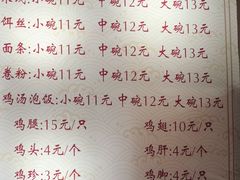 小碗11元 中碗12元 大碗13元
饵丝:小碗11元 中碗12元 大碗13元
面条:小碗11元 中碗12元 大碗13元
卷粉:小碗11元 中碗12元 大碗13元
鸡汤泡饭:小碗11元 中碗12元 大碗13元
鸡腿:15元/只 鸡翅:10元/只
鸡头:4元/个 鸡肝:4元/个
鸡珍:3元/个 鸡脚:4元/只